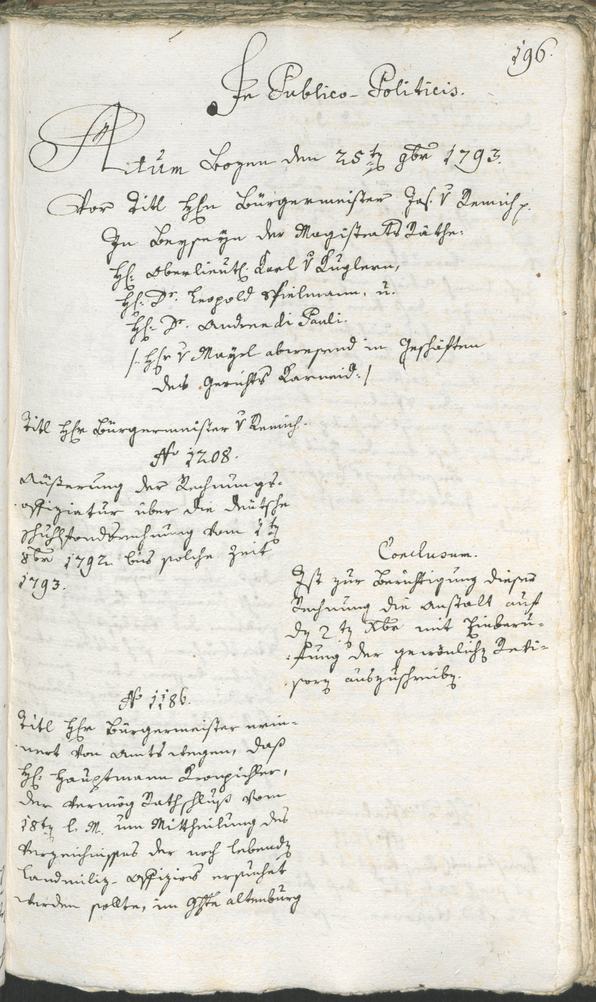 196.
In Publico-Politicis.
Actum Bozen den 25ten 9ber 1793.
Vor Titl Hhn Bürgermeister Jos. v Remich p.
In Beyseyn der Magistrats Räthe:
Hh: Oberlieut: Karl v Kuglern,
Hh: Dr. Leopold Spielmann, u.
Hh: Dr. Andree di Pauli.
/: Hhr v Mayrl abwesend in Geschäften
des Gerichts Karneid: /
Titl Hhr Bürgermeister v Remich.
No 1208.
Äußerung der Rechnungs-
offiziatur über die deutsche
Schuhlfondsrechnung vom 1ten
8ber 1792 bis solche Zeit
1793.
Conclusum.
Ist zur Berichtigung dieser
Rechnung die Anstalt auf
den 2ten Xber mit Einberu-
fung der gewönlichen Revi-
soren auszuschreiben.
No 1186.
Titl Hhr Bürgermeister erin-
nert von Amts wegen, daß
Hh: Hauptmann Kronpichler,
der vermög Rathschluß vom
18ten l. M. um Mittheilung des
Verzeichnisses der noch lebenden
Landmiliz-Offiziers ersuchet
werden sollte, im Ghte Altenburg